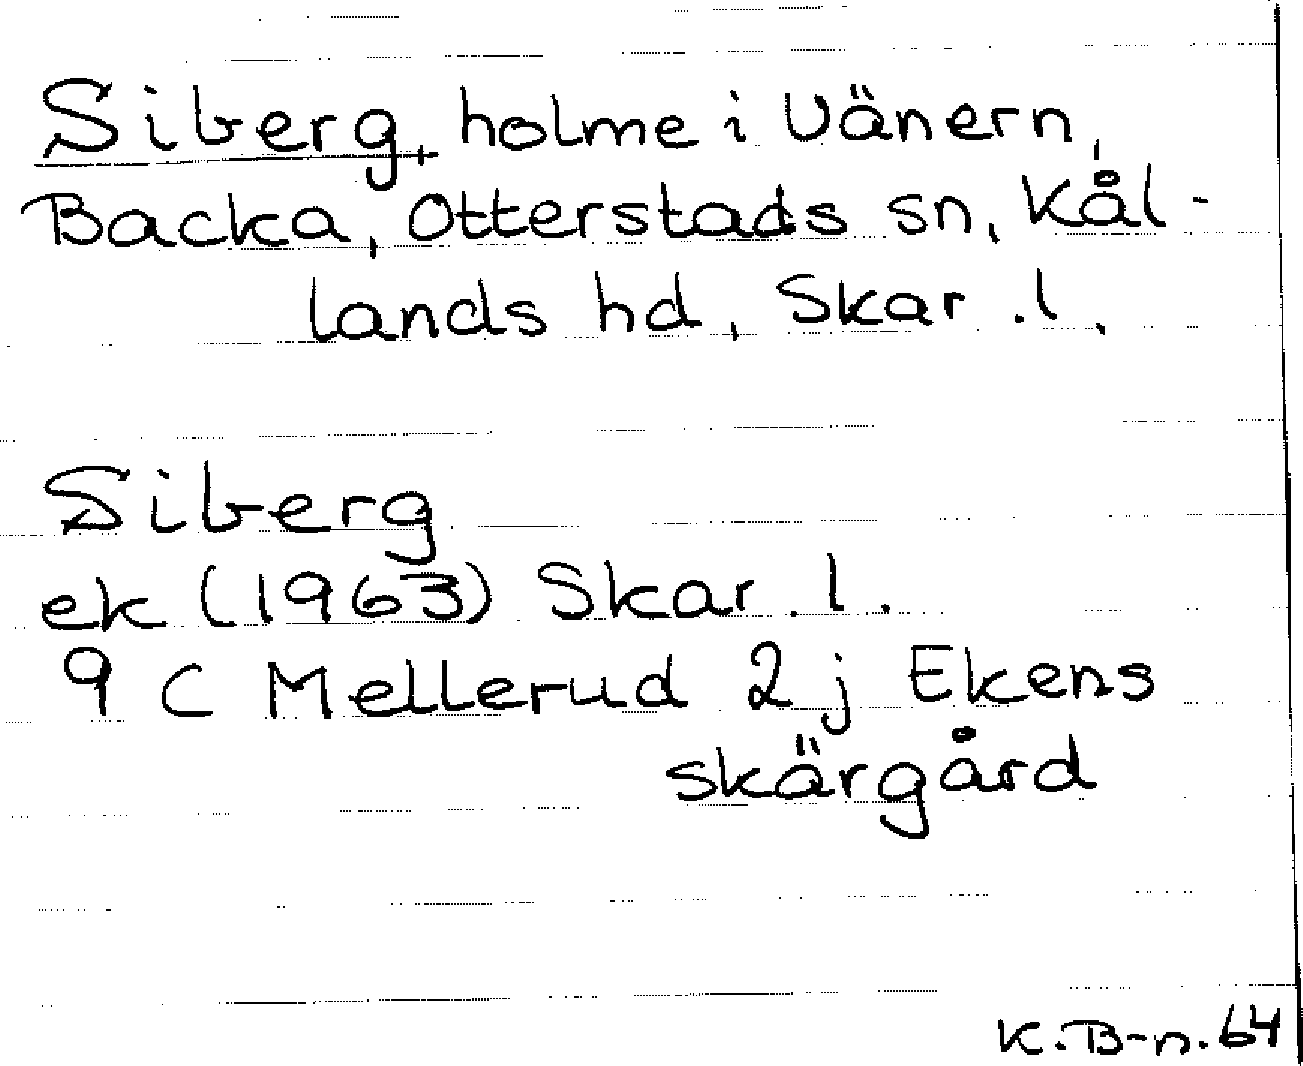 Siberg, holme i Vänern,
Backa, Otterstads sn, Kål-
lands hd, Skar.l.
Siberg
ek (1963) Skar.l.
9 C Mellerud 2j Ekens
skärgård
K.B-n.64